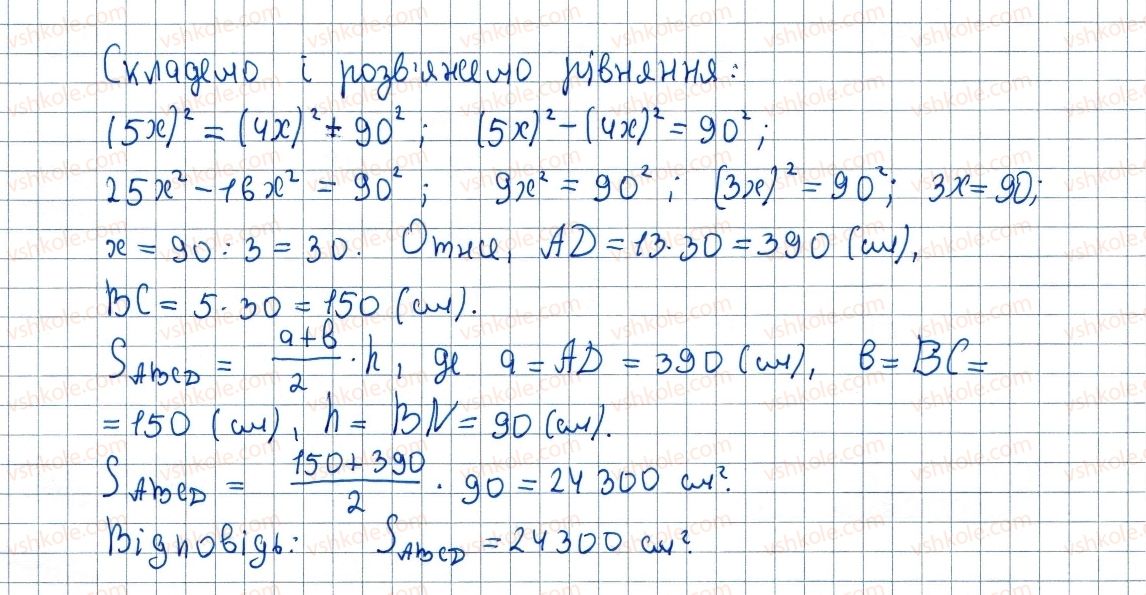 Складемо і розв'яжемо рівняння:
(5x)² = (4x)² + 90²; (5x)² − (4x)² = 90²;
25x² − 16x² = 90²; 9x² = 90²; (3x)² = 90²; 3x = 90;
x = 90 : 3 = 30. Отже, AD = 13 · 30 = 390 (см),
BC = 5 · 30 = 150 (см).
S_ABCD = (a + b)/2 · h, де a = AD = 390 (см), b = BC =
= 150 (см), h = BN = 90 (см).
S_ABCD = (150 + 390)/2 · 90 = 24 300 см².
Відповідь: S_ABCD = 24300 см².